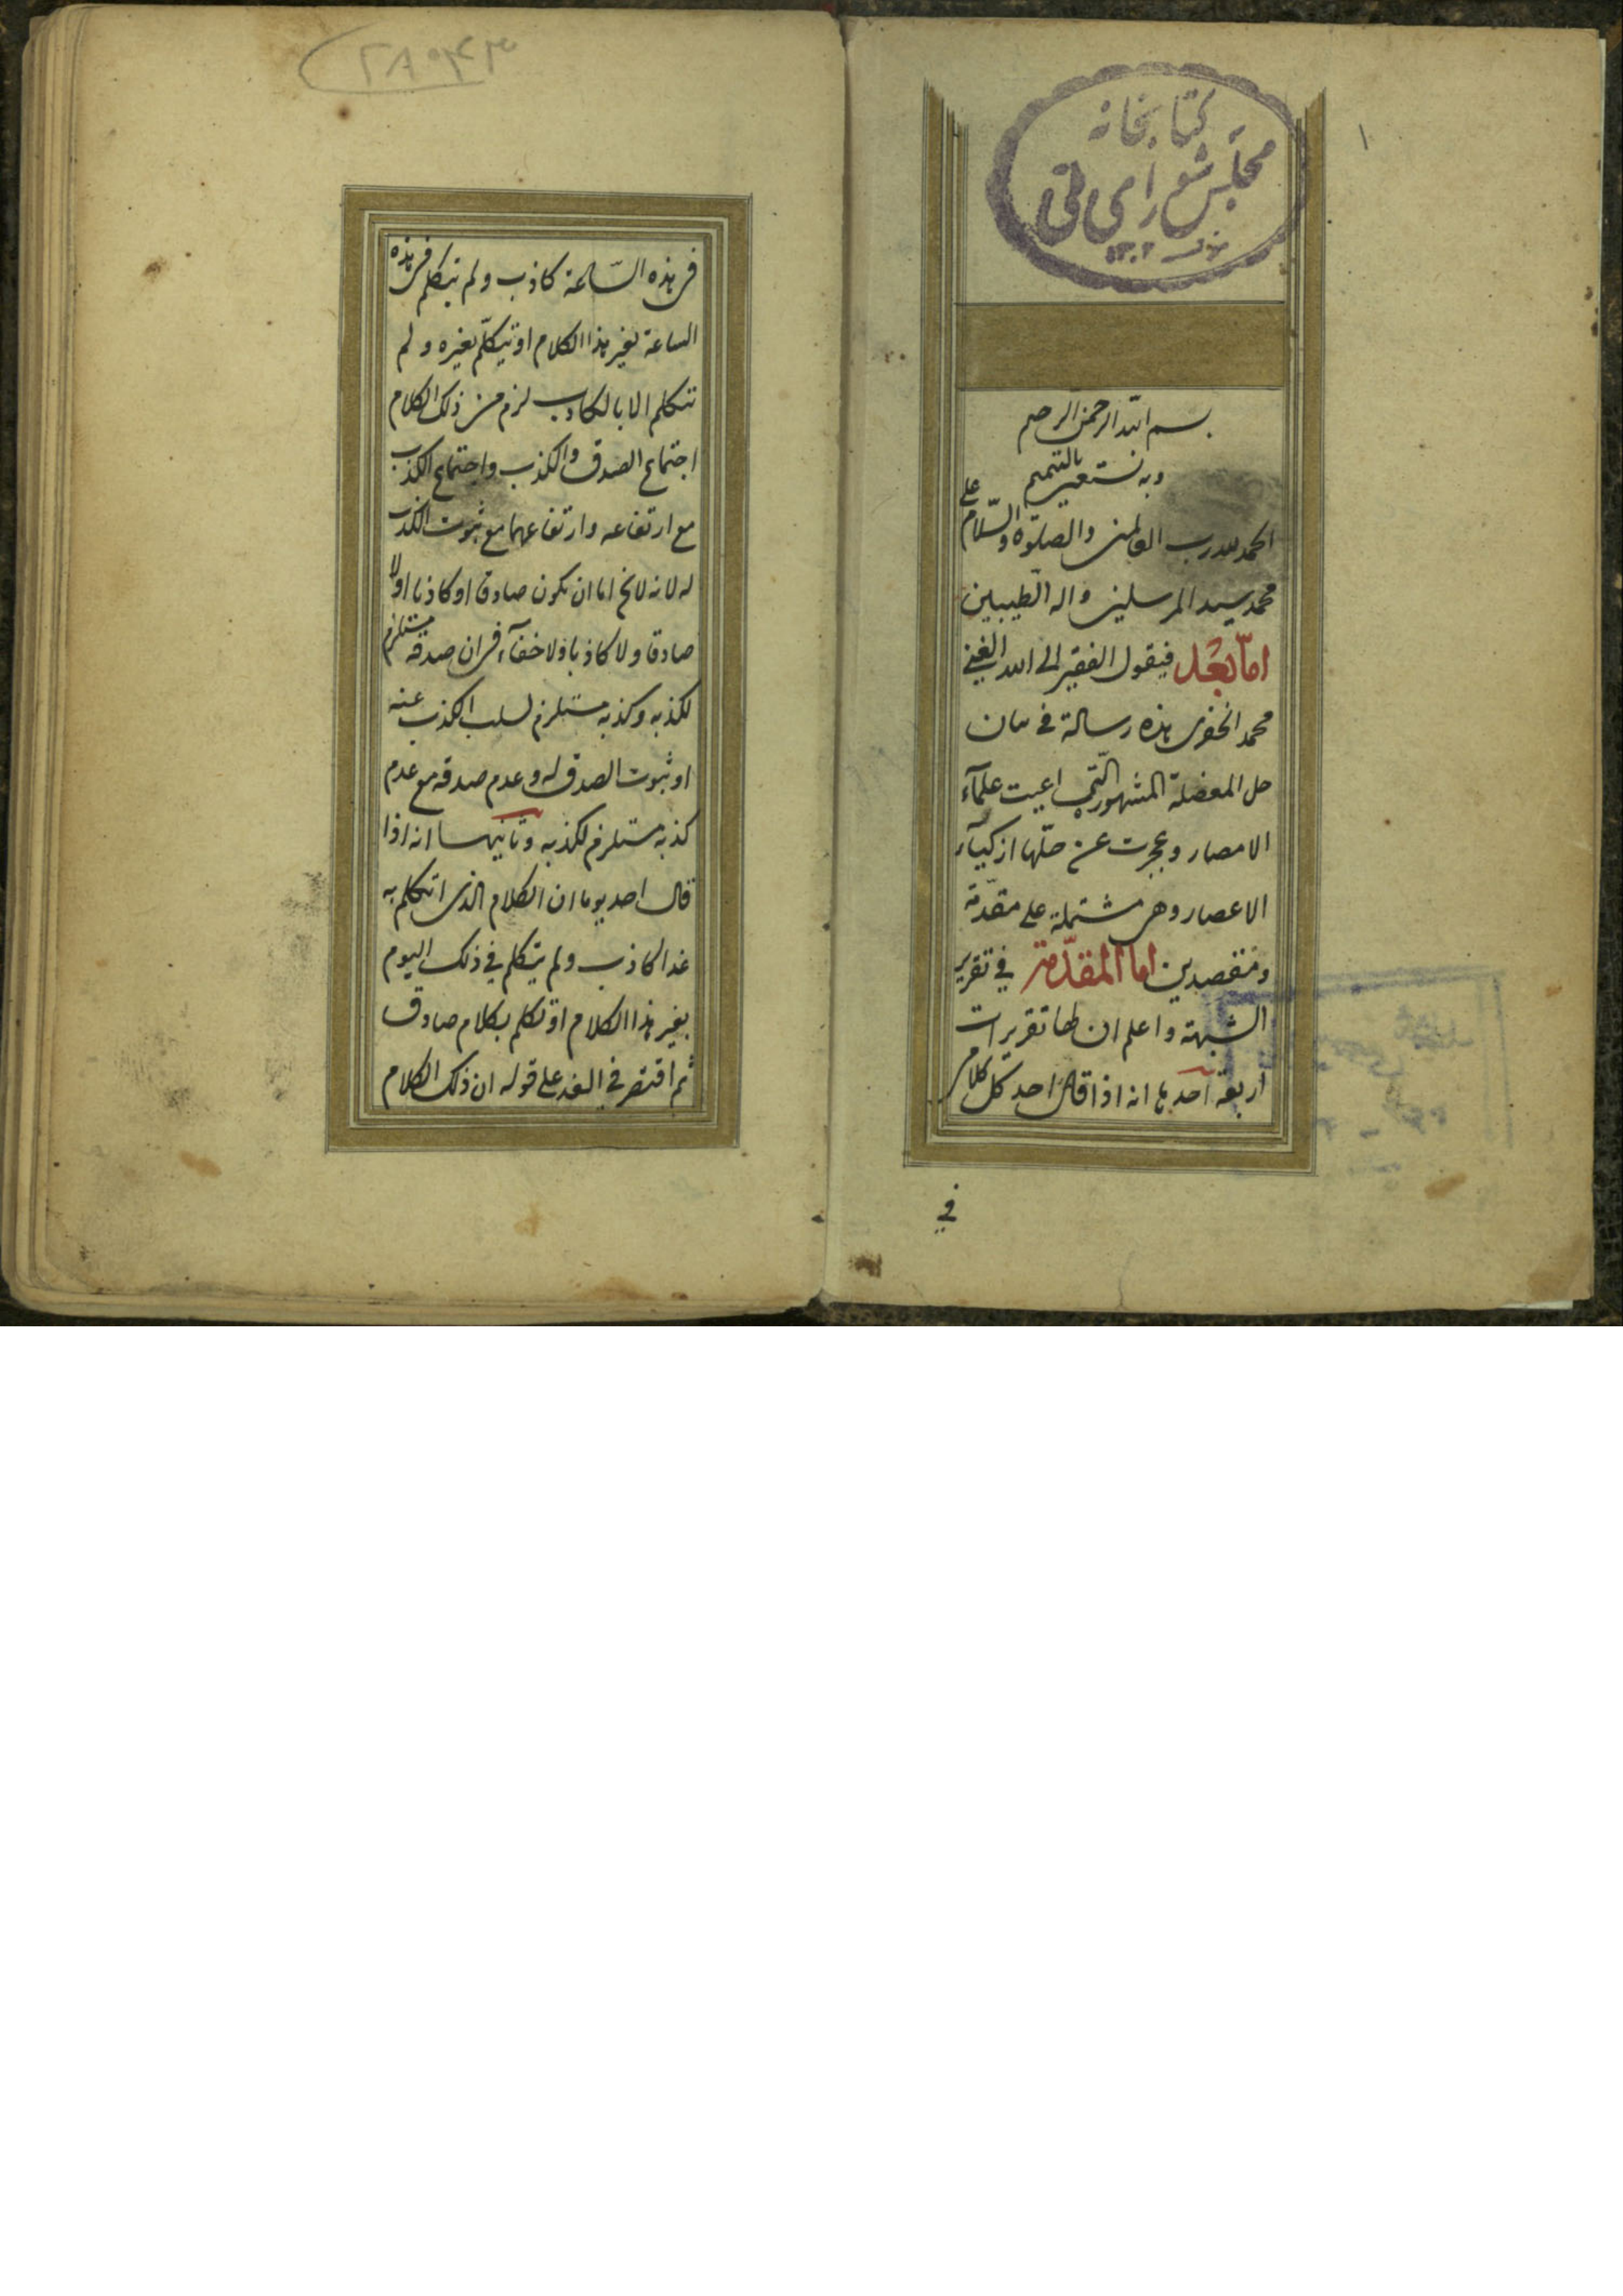 كتابخانه
مجلس شوراي ملي
١٣٠٢
١
بسم الله الرحمن الرحيم
وبه نستعين بالتتميم
الحمد لله رب العالمين والصلوة والسّلام على
محمد سيد المرسلين واله الطيبين
امّا بعد فيقول الفقير الى الله الغني
محمد الخفرى هذه رسالة في بيان
حل المعضلة المشهورة الّتي اعيت علمآء
الامصار وعجزت عن حلّها ازكيآء
الاعصار وهى مشتملة على مقدّمة
ومقصدين اما المقدّمة في تقرير
الشبهة واعلم ان لها تقريرات
اربعة احديها انه اذا قال احد كل كلامى
في
٢٨٠٤٣
فى هذه السّاعة كاذب ولم يتكلم فى هذه
الساعة بغير هذا الكلام او تيكلّم بغيره ولم
تتكلم الا بالكاذب لزم من ذلك الكلام
اجتماع الصدق والكذب واجتماع الكذب
مع ارتفاعه وارتفاعهما مع ثبوت الكذب
له لانه لا يخ اما ان يكون صادقا او كاذبا او لا
صادقا ولا كاذبا ولا خفآء فى ان صدقه مستلزم
لكذبه وكذبه مستلزم لسلب الكذب عنه
او ثبوت الصدق له وعدم صدقه مع عدم
كذبه مستلزم لكذبه وثانيها انه اذا
قال احد يوما ان الكلام الذى اتكلم به
غدا كاذب ولم يتكلم في ذلك اليوم
بغير هذا الكلام او تكلم بكلام صادق
ثم اقتصر في الغد على قوله ان ذلك الكلام